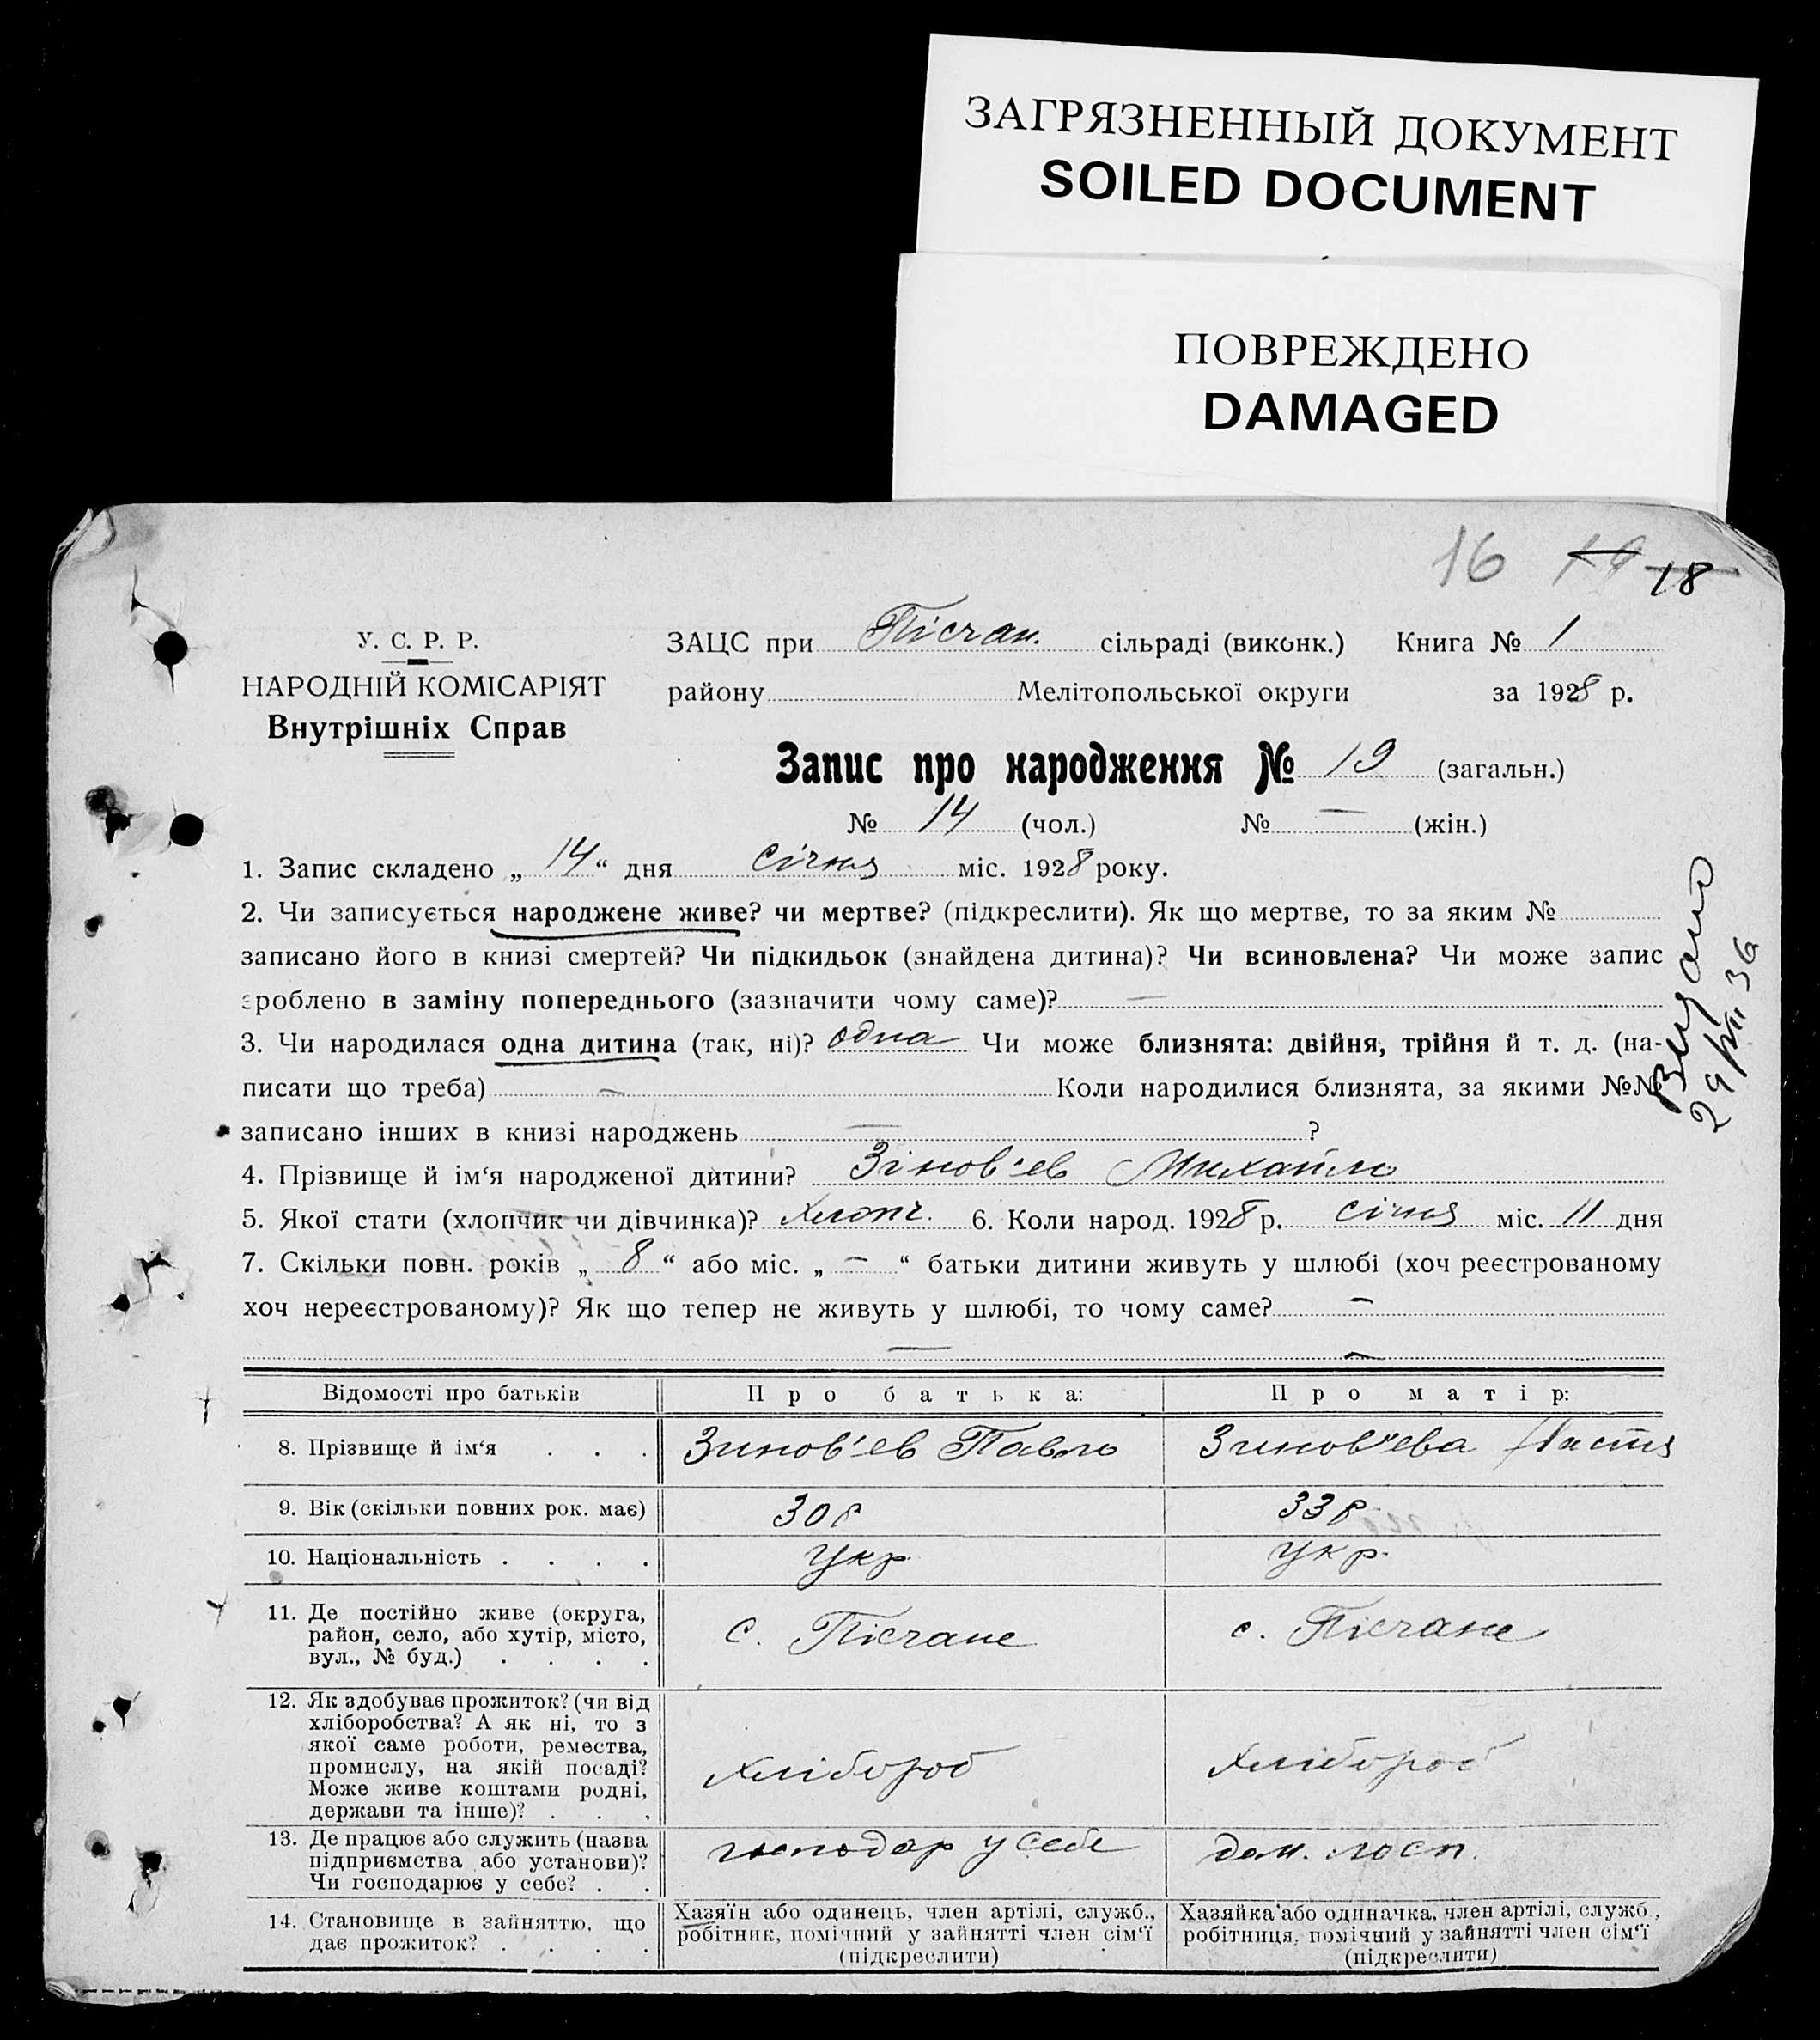 ЗАГРЯЗНЕННЫЙ ДОКУМЕНТ
SOILED DOCUMENT
ПОВРЕЖДЕНО
DAMAGED
16 19 18
У. С. Р. Р.
НАРОДНІЙ КОМІСАРІЯТ
Внутрішніх Справ
ЗАЦС при Пісчан. сільраді (виконк.) Книга № 1
району Мелітопольської округи за 1928 р.
Запис про народження № 19 (загальн.)
№ 14 (чол.) № — (жін.)
1. Запис складено „ 14 “ дня січня міс. 1928 року.
2. Чи записується народжене живе? чи мертве? (підкреслити). Як що мертве, то за яким №
записано його в книзі смертей? Чи підкидьок (знайдена дитина)? Чи всиновлена? Чи може запис
зроблено в заміну попереднього (зазначити чому саме)? —
3. Чи народилася одна дитина (так, ні)? одна Чи може близнята: двійня, трійня й т. д. (на-
писати що треба) — Коли народилися близнята, за якими №№
записано інших в книзі народжень — ?
4. Прізвище й ім‘я народженої дитини? Зінов'ев Михайло
5. Якої стати (хлопчик чи дівчинка)? хлопч. 6. Коли народ. 1928 р. січня міс. 11 дня
7. Скільки повн. років „ 8 “ або міс. „ — “ батьки дитини живуть у шлюбі (хоч реєстрованому
хоч нереєстрованому)? Як що тепер не живуть у шлюбі, то чому саме? —
— —
Видано
29/VII 36
Відомості про батьків Про батька: Про матір:
8. Прізвище й ім‘я . . . Зинов'ев Павло Зинов'ева Настя
9. Вік (скільки повних рок. має) 30 р 33 р.
10. Національність . . . . Укр. Укр.
11. Де постійно живе (округа,
район, село, або хутір, місто,
вул., № буд.) . . . .
с. Пісчане с. Пісчане
12. Як здобуває прожиток? (чи від
хліборобства? А як ні, то з
якої саме роботи, ремества,
промислу, на якій посаді?
Може живе коштами родні,
держави та інше)? . . .
хлібороб хлібороб
13. Де працює або служить (назва
підприємства або установи)?
Чи господарює у себе? . .
господар у себе дом. госп.
14. Становище в зайняттю, що
дає прожиток? . . . .
Хазяїн або одинець, член артілі, служб.,
робітник, помічний у зайнятті член сім‘ї
(підкреслити)
Хазяйка або одиначка, член артілі, служб.,
робітниця, помічний у зайнятті член сім‘ї
(підкреслити)